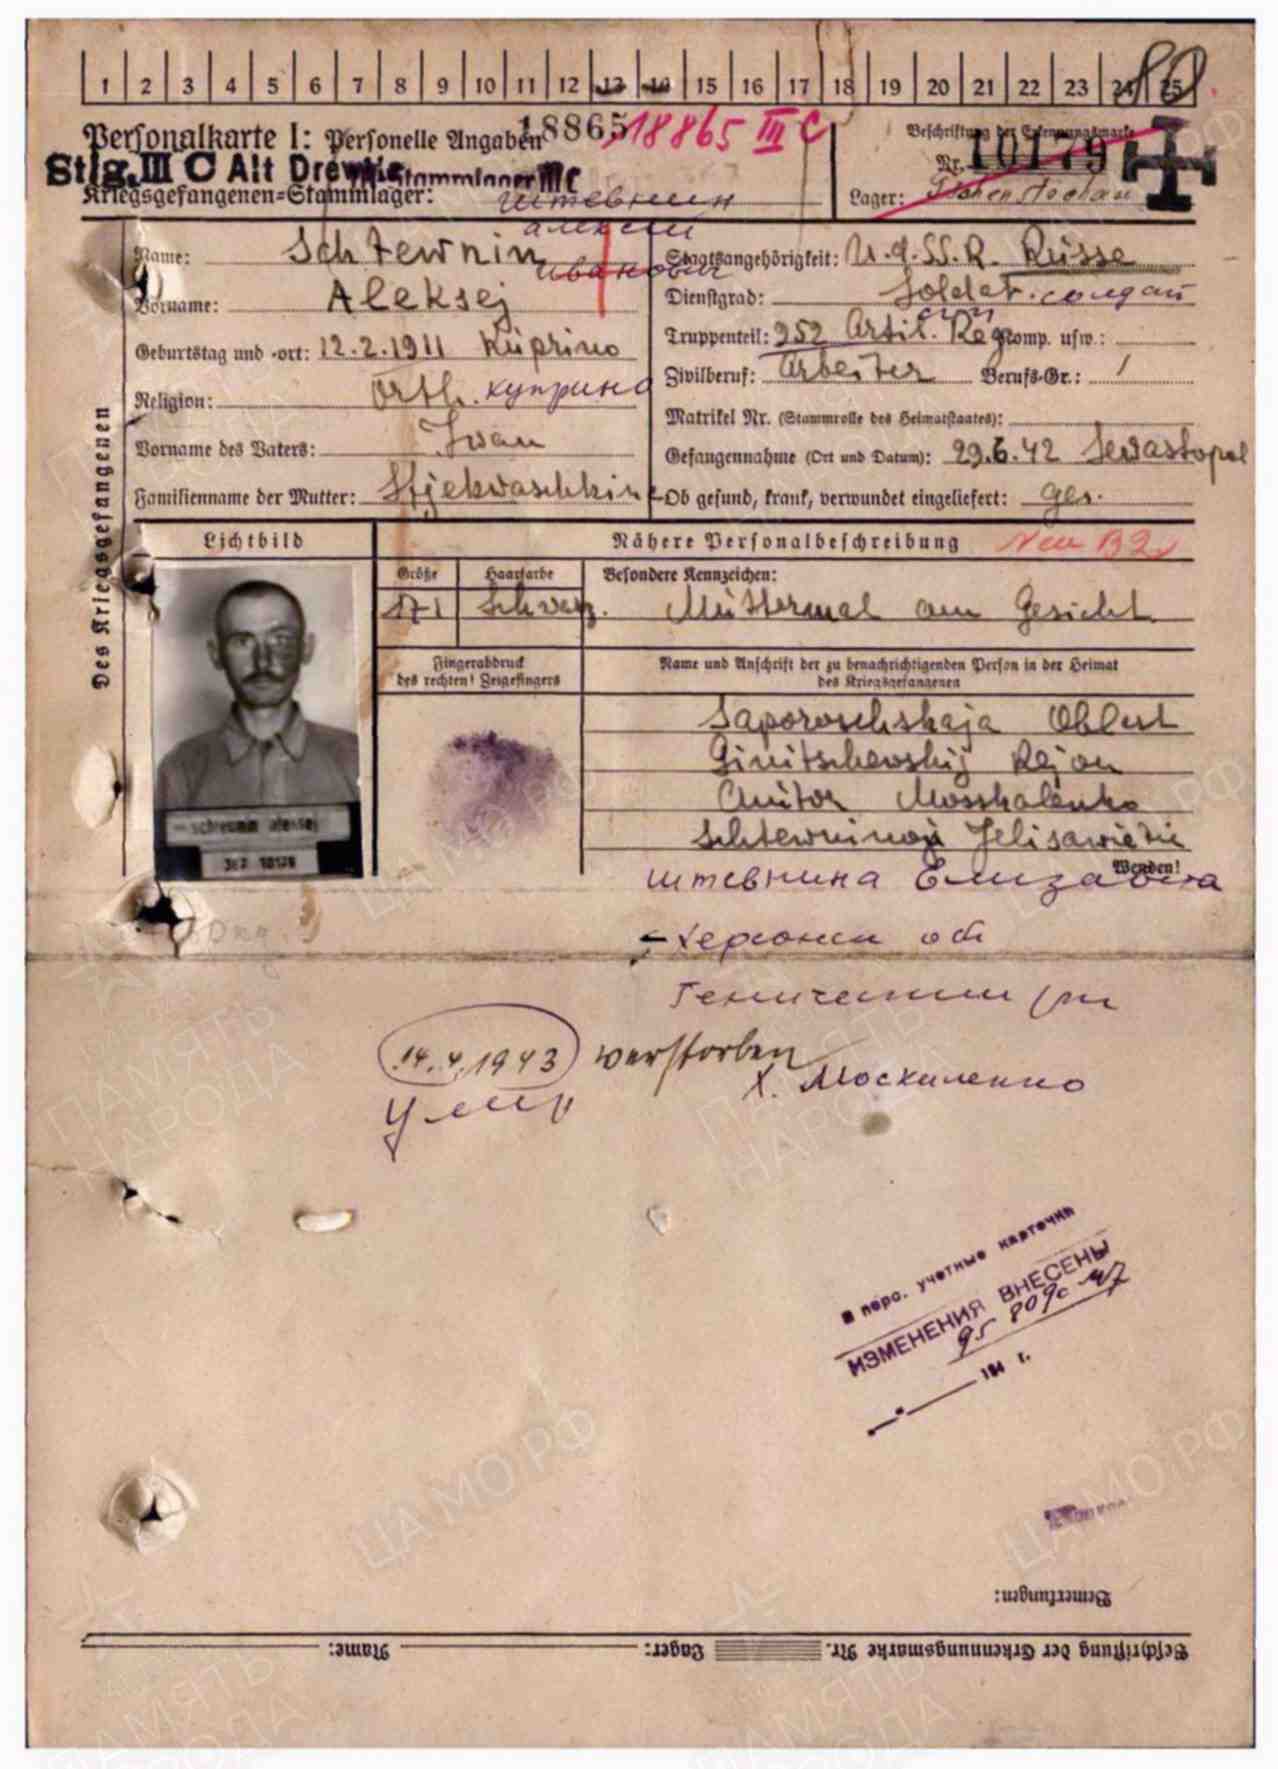 1 2 3 4 5 6 7 8 9 10 11 12 13 14 15 16 17 18 19 20 21 22 23 24 25
Personalkarte I: Personelle Angaben
18865 18865 III C
Beschriftung der Erkennungsmarke
Nr. 10179
Stlg. III C Alt Drewitz
Stammlager III C
Kriegsgefangenen-Stammlager:
Lager:
Штевнин
Алексей
Иванович
Des Kriegsgefangenen
Name: Schtewnin
Vorname: Aleksej
Geburtstag und -ort: 12.2.1911 Küprino
Religion: Orth. куприно
Vorname des Vaters: Iwan
Familienname der Mutter:
Staatsangehörigkeit: U.d.SS.R. Rüsse
Dienstgrad: Soldat. солдат
Truppenteil: 952 Artil. Reg Komp. usw.:
Zivilberuf: Arbeiter Berufs-Gr.: /
Matrikel Nr. (Stammrolle des Heimatstaates):
Gefangennahme (Ort und Datum): 29.6.42 Sewastopol
Ob gesund, krank, verwundet eingeliefert: ges.
Lichtbild
Nähere Personalbeschreibung Neu B2
Größe Haarfarbe Besondere Kennzeichen:
171 Schwarz. Müttermal am Gesicht
Fingerabdruck
des rechten! Zeigefingers
Name und Anschrift der zu benachrichtigenden Person in der Heimat
des Kriegsgefangenen
Saporoschskaja Oblast
Ginitschevskij Rejon
Chutor Mosskalenko
Schtewninoj Jelisawietie
Wenden!
Штевнина Елизавета
Херсонск об
Геническии рн
14.4.1943 verstorben
Х. Москаленко
Умер
В перс. учетные карточки
ИЗМЕНЕНИЯ ВНЕСЕНЫ
194 г.
Bemerkungen:
Beschriftung der Erkennungsmarke Nr. Lager: Name:
ПАМЯТЬ НАРОДА
ЦАМО.РФ